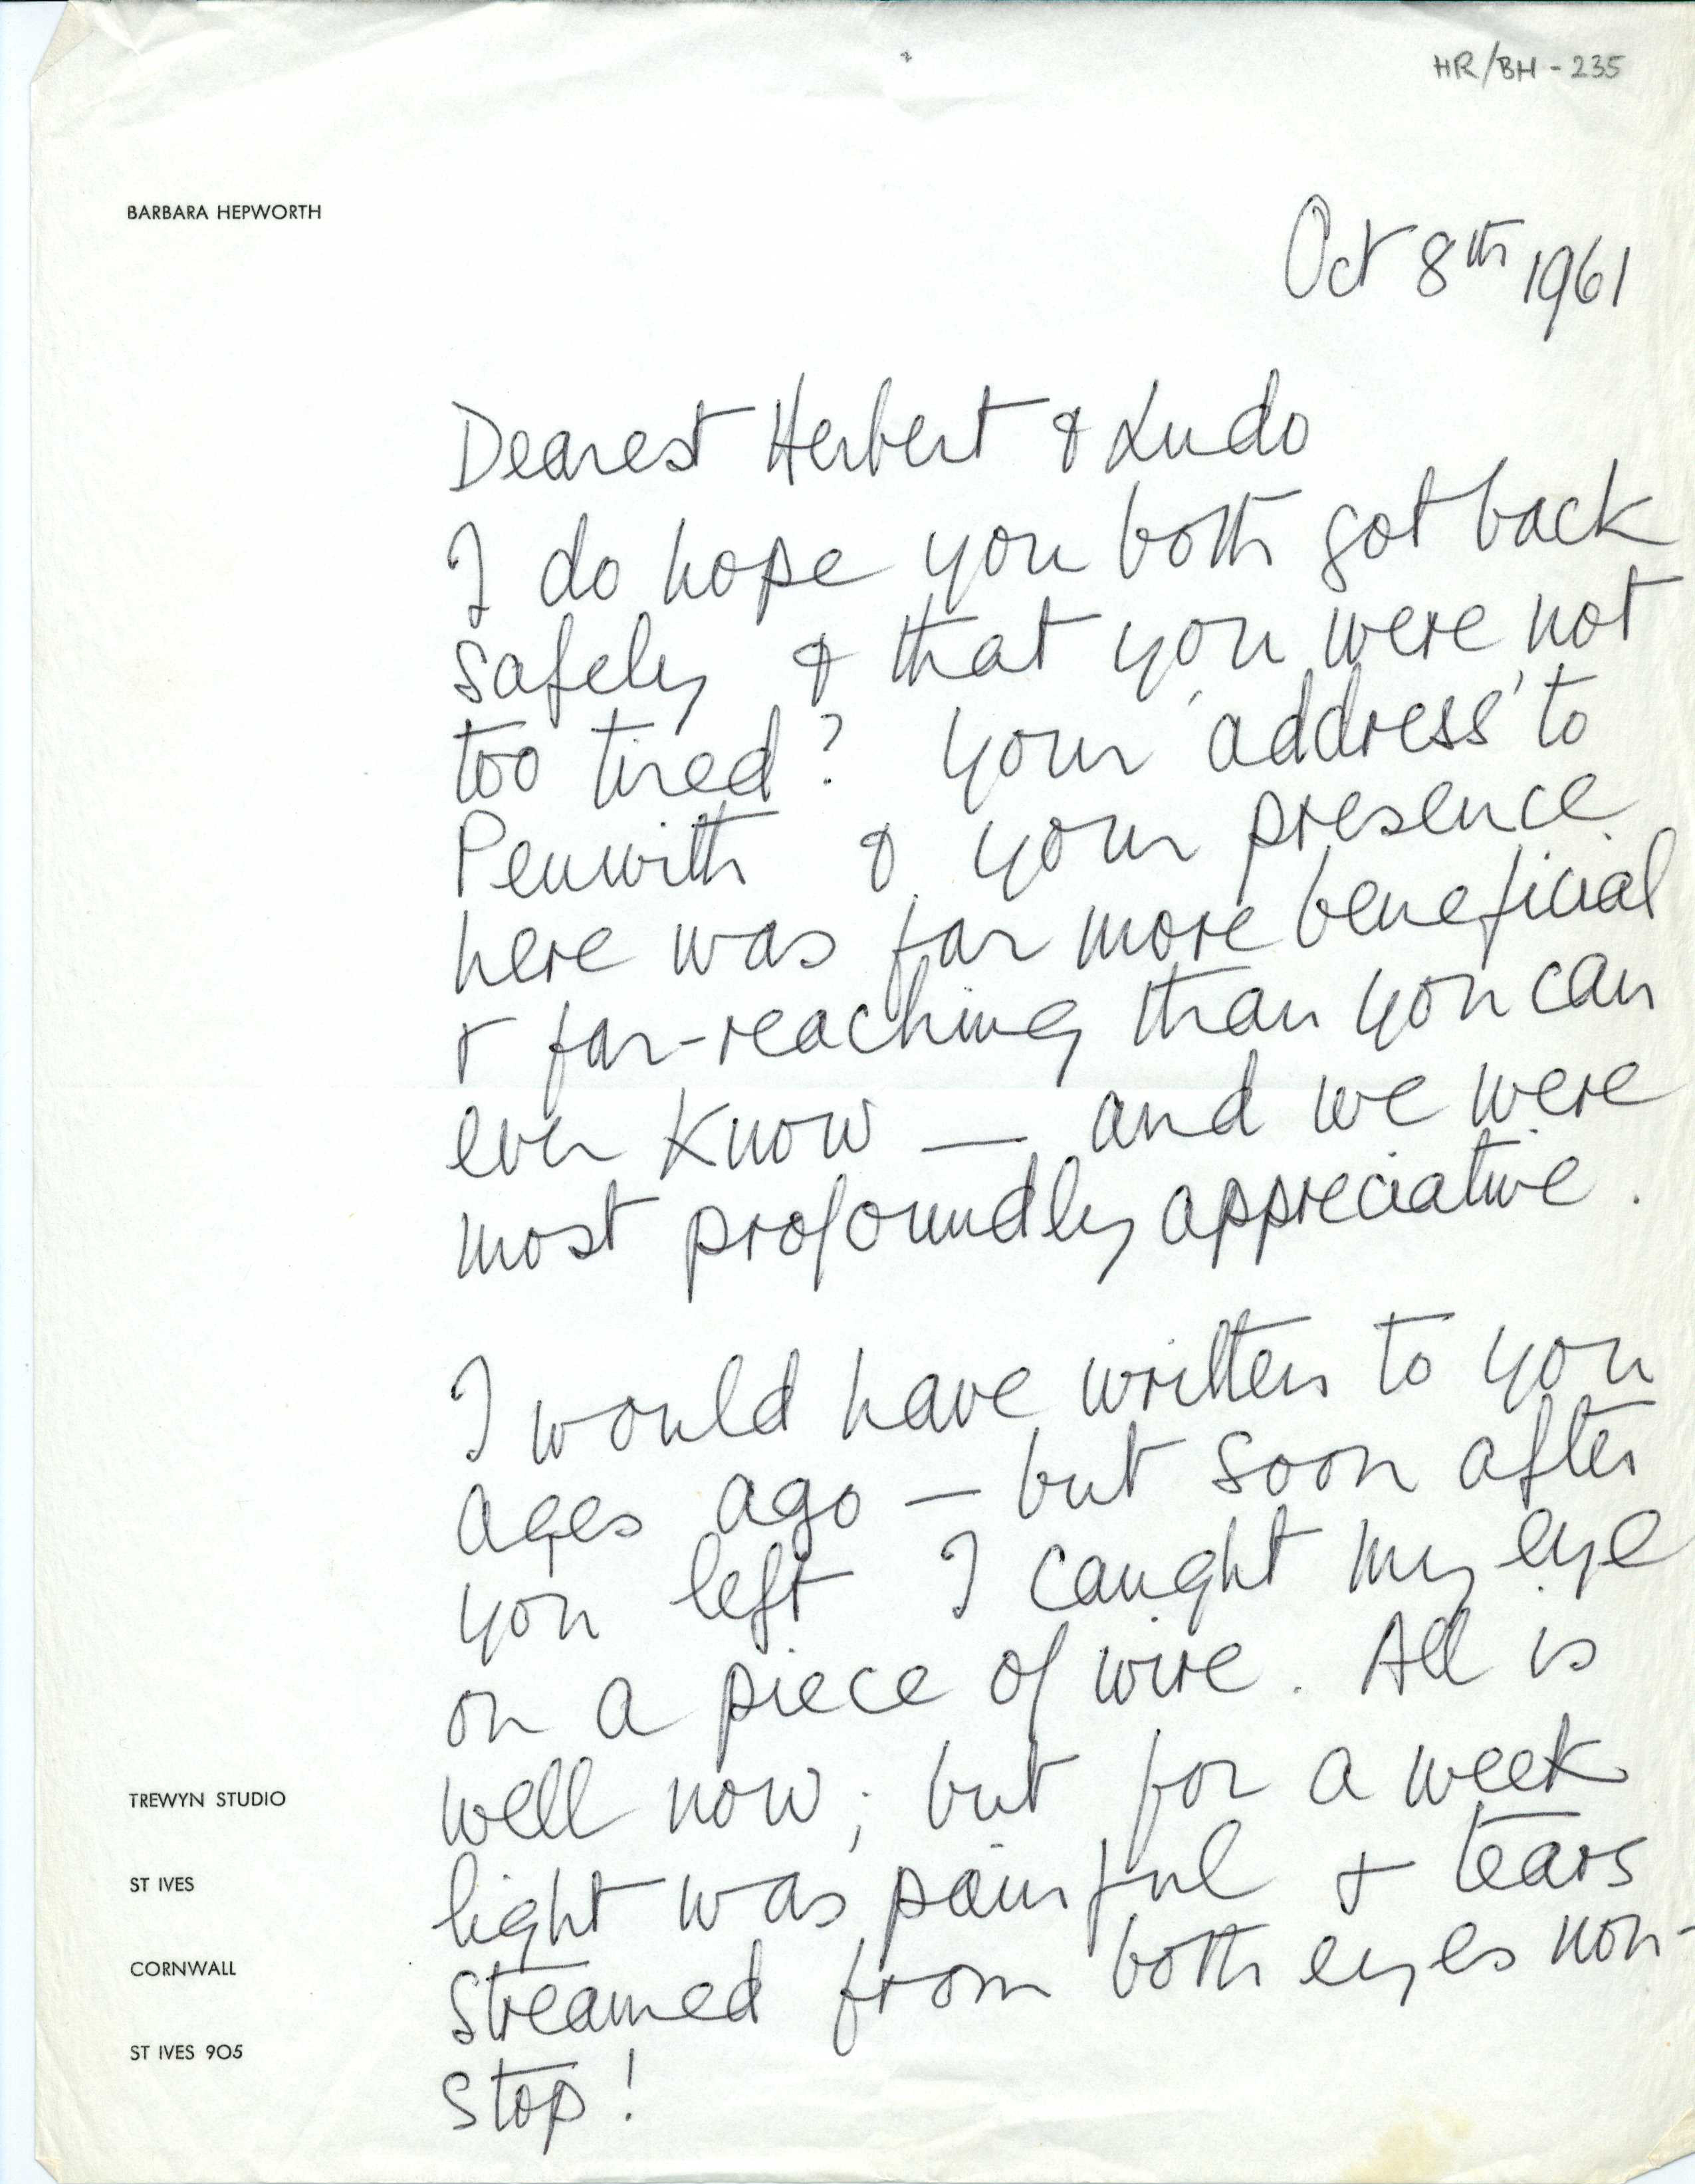 HR/BH - 235
BARBARA HEPWORTH
Oct 8th 1961
Dearest Herbert & Ludo
I do hope you both got back
safely & that you were not
too tired? Your 'address' to
Penwith & your presence
here was far more beneficial
& far-reaching than you can
ever know — and we were
most profoundly appreciative.
I would have written to you
ages ago — but soon after
you left I caught my eye
on a piece of wire. All is
well now; but for a week
light was painful + tears
streamed from both eyes non-
stop!
TREWYN STUDIO
ST IVES
CORNWALL
ST IVES 905